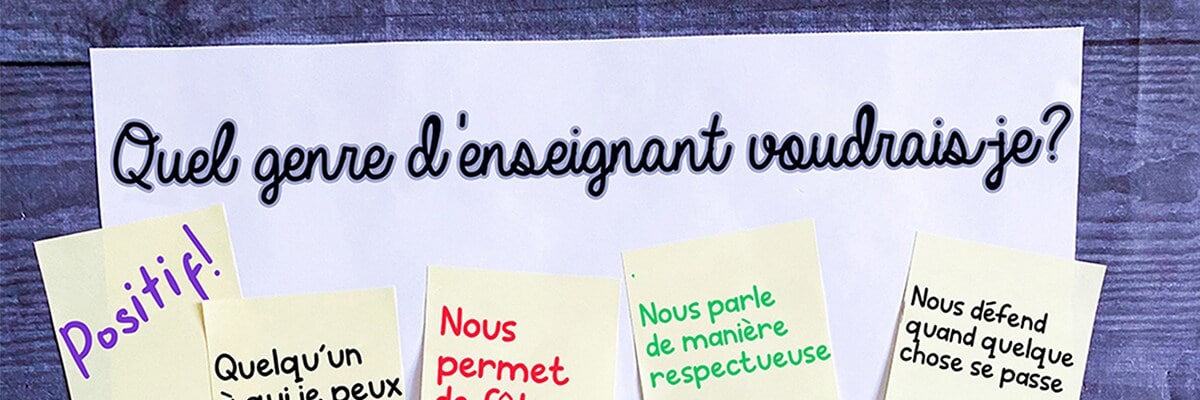 Quel genre d'enseignant voudrais-je?
Positif!
Quelqu'un
à qui je peux
Nous
permet
de
Nous parle
de manière
respectueuse
Nous défend
quand quelque
chose se passe